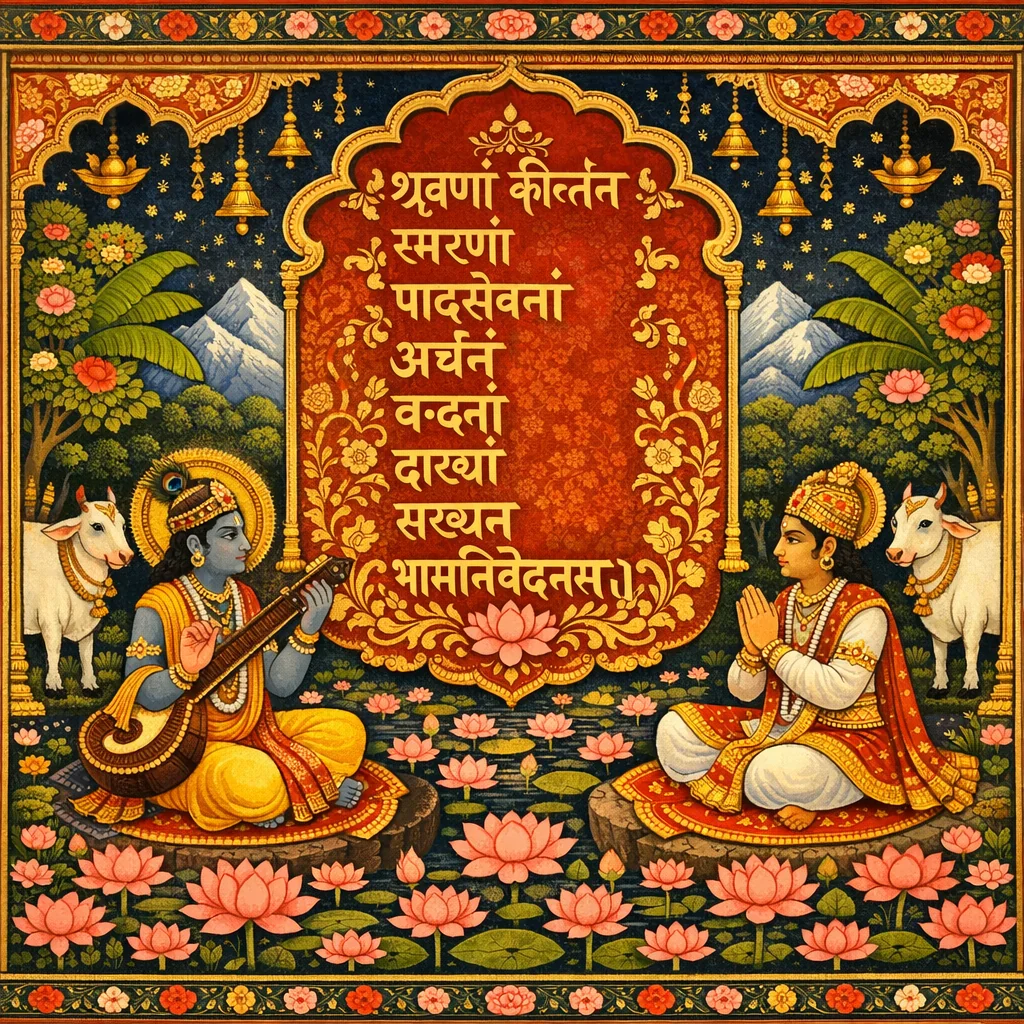 श्रवणां कीर्त्तन
स्मरणां
पादसेवनां
अर्चनं
वन्दनां
दाख्यां
सख्यन
भामतिवेदनस।)